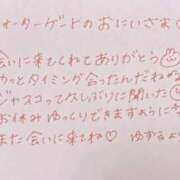 ォーターゲートのおにいさま♡
会いに来てくれてありがとう
カっとタイミング合ったんだね
ジャスコってなしぶりに聞いた
お休みゆっくりできますように♡
また会いに来てね♡ ゆずるより